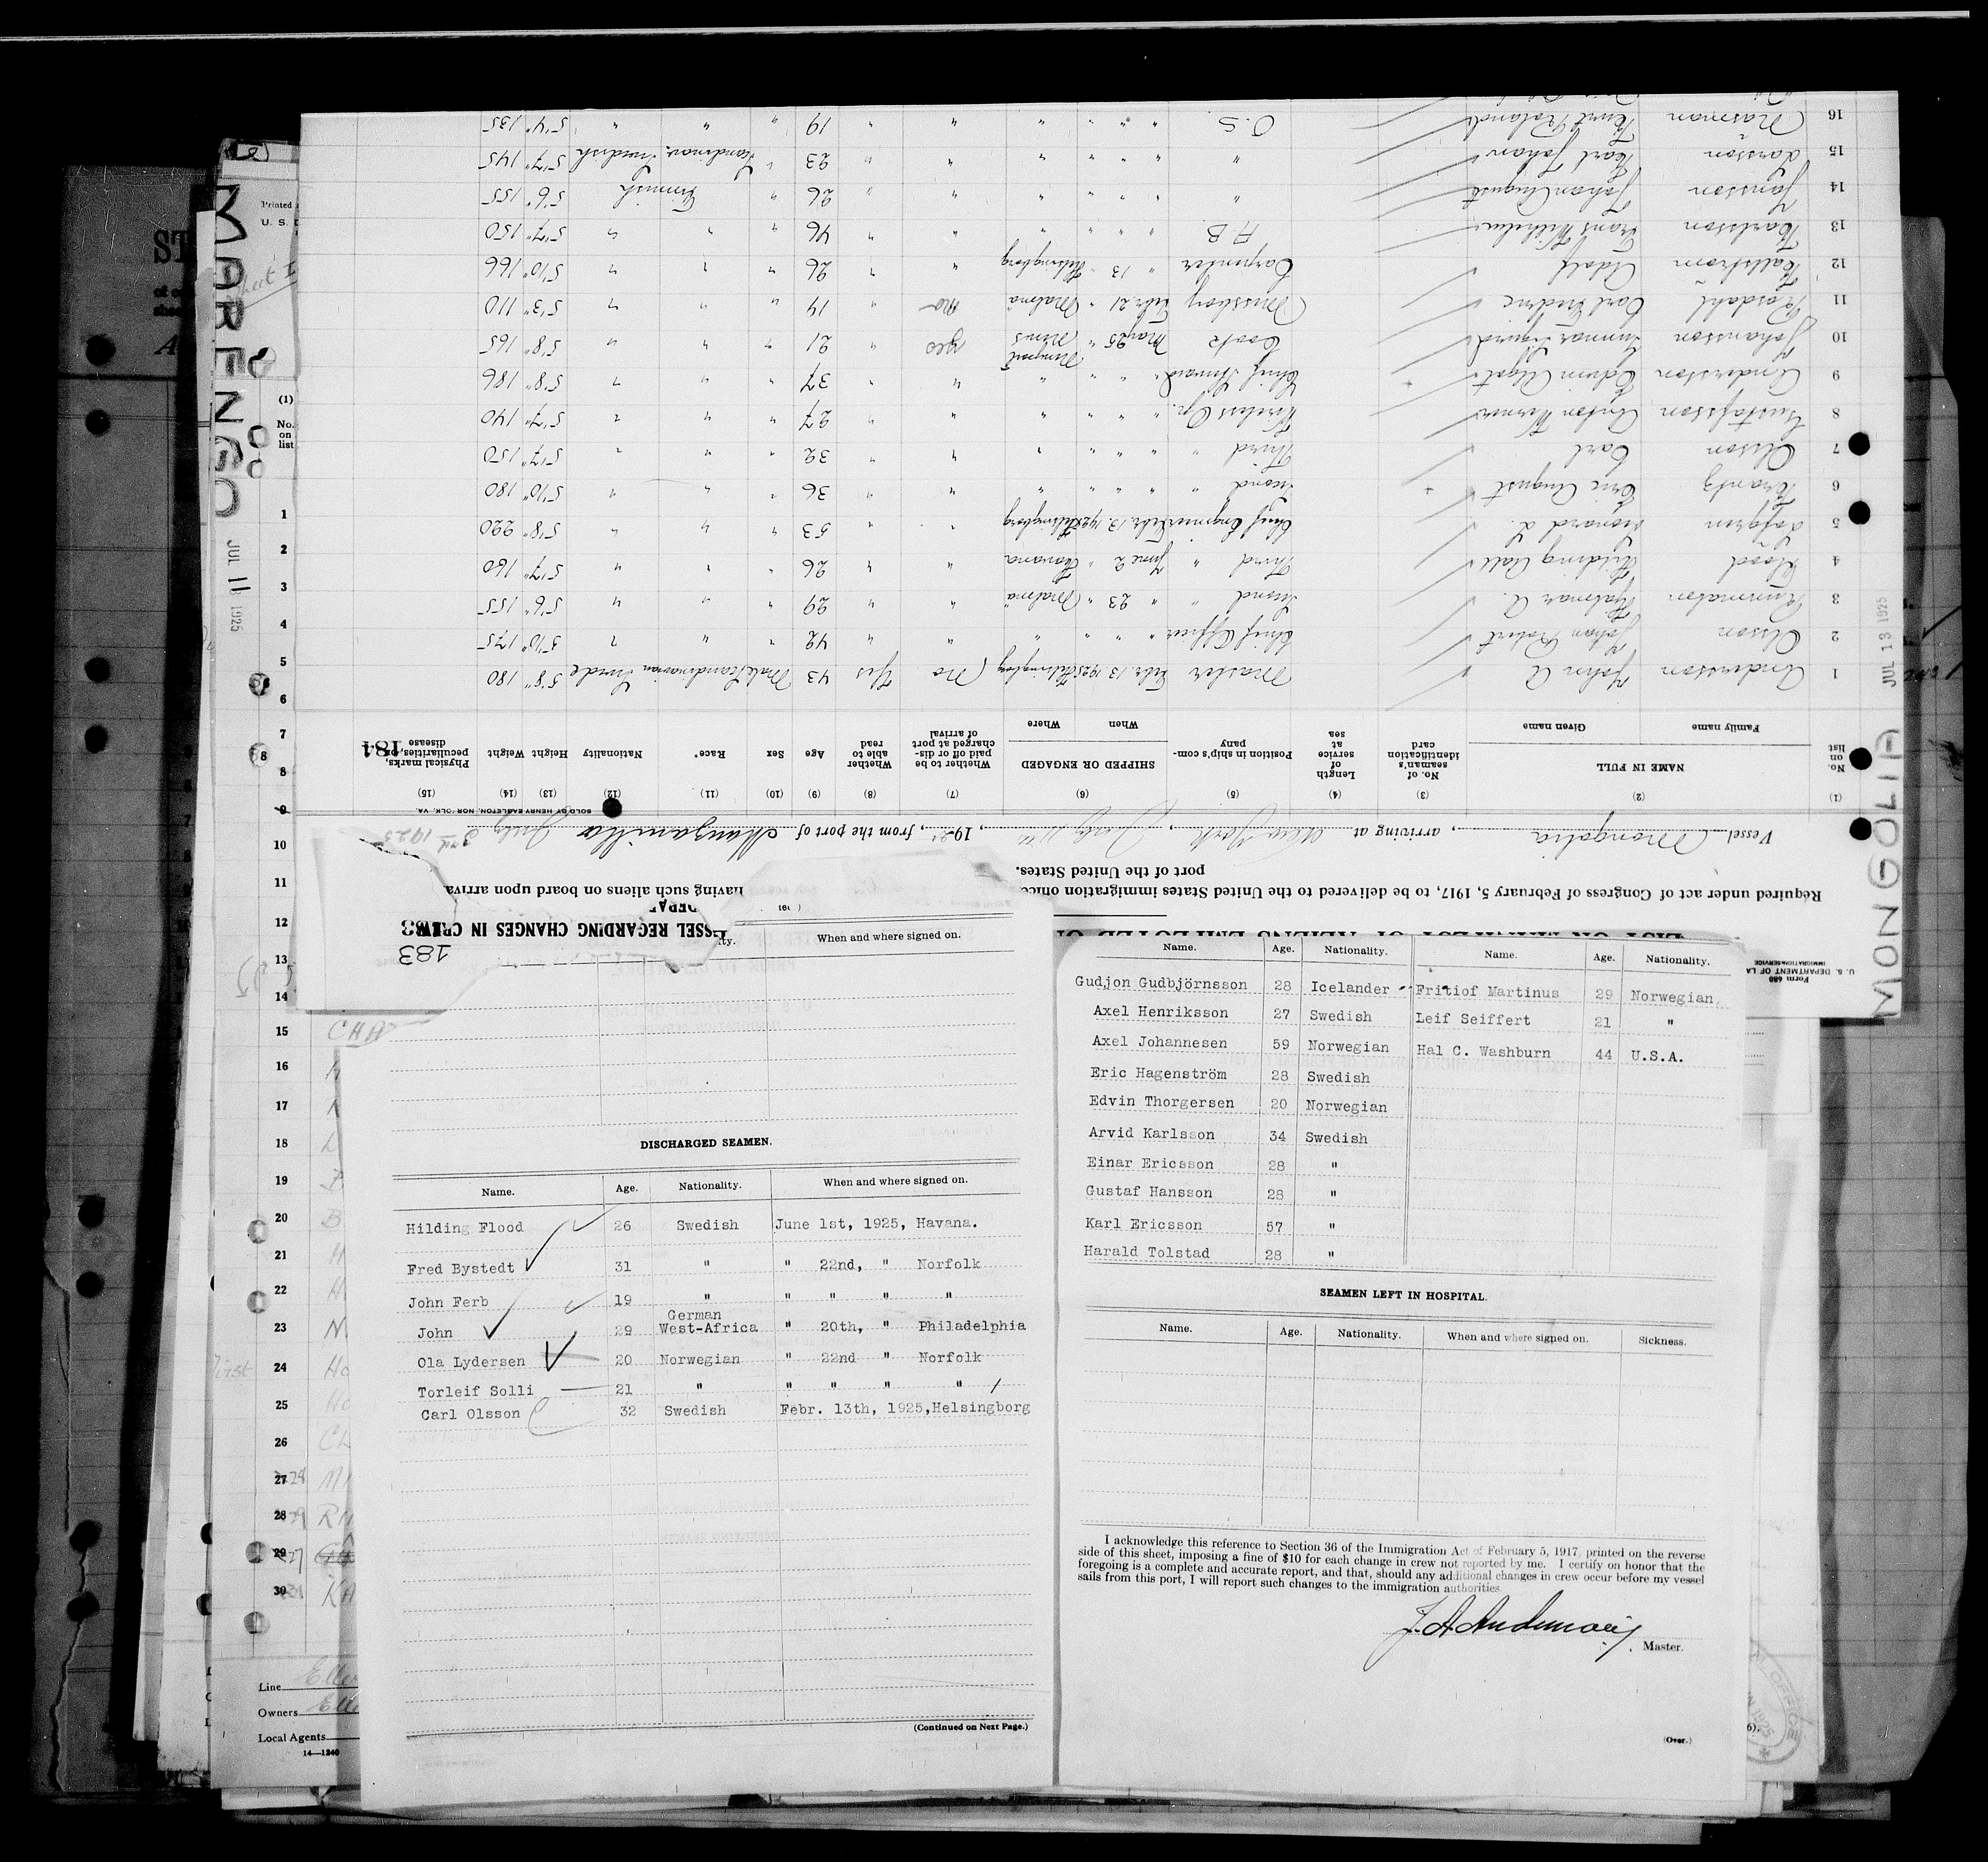 MONGOLIA
JUL 13 1925
Form 680
U. S. DEPARTMENT OF LA
IMMIGRATION SERVICE
Required under act of Congress of February 5, 1917, to be delivered to the United States immigration
having such aliens on board upon arriva
port of the United States.
Vessel Mongolia, arriving at New York, July 11th, 1925, from the port of Manzanillo July 3rd 1925
SOLD BY HENRY EAGLETON, NORFOLK, VA.
(1) (2) (3) (4) (5) (6) (7) (8) (9) (10) (11) (12) (13) (14) (15)
No. on list NAME IN FULL No. of seaman's identification card Length of service at sea Position in ship's company SHIPPED OR ENGAGED Whether to be paid off or discharged at port of arrival Whether able to read Age Sex Race* Nationality Height Weight Physical marks, peculiarities, or disease
Family name Given name When Where
184
1 Andersson John A Master Febr. 13. 1925 Helsingborg No Yes 43 Male Scandinavian Swede 5'8" 180
2 Olsson Johan Robert Chief Officer " " " " " " 42 " " " 5'10" 175
3 Hjalmar A. Second " " 23 " Malmö " " 29 " " " 5'6" 155
4 Flood Hilding Third " June 2 " Havana " " 26 " " " 5'7" 160
5 Löfgren Leonard L. Chief Engineer Febr. 13. 1925 Helsingborg " " 53 " " " 5'8" 220
6 Krantz Eric August Second " " " " " " " 36 " " " 5'10" 180
7 Olsson Carl Third " " " " " " " 32 " " " 5'7" 150
8 Gustafsson Anton Werner Wireless Op. " " " " " " 27 " " " 5'7" 140
9 Andersson Edwin Algot Chief Steward " " " " " " 37 " " " 5'8" 186
10 Johansson Gunnar Sigurd Cook May 25 " Newport News yes " 21 " " " 5'8" 165
11 Rosdahl Carl Fredric Messboy Febr. 21 " Malmö no " 14 " " " 5'3" 110
12 Källström Adolf Carpenter " 13 " Helsingborg " " 26 " " " 5'10" 166
13 Karlsson Frans Wilhelm A.B. " " " " " " 46 " " " 5'7" 150
14 Jansson Johan August " " " " " " " 26 " Finnish 5'6" 155
15 Larsson Karl Johan " " " " " " " 23 " Scandinav. Swedish 5'7" 145
16 Näsman Kurt Roland O.S. " " " " " " 19 " " " 5'4" 135
SSEL REGARDING CHANGES IN CREW
183
When and where signed on.
DISCHARGED SEAMEN.
Name. Age. Nationality. When and where signed on.
Hilding Flood 26 Swedish June 1st, 1925, Havana.
Fred Bystedt 31 " " 22nd, " Norfolk
John Ferb 19 " " " " "
John 29 German West-Africa " 20th, " Philadelphia
Ola Lydersen 20 Norwegian " 22nd " Norfolk
Torleif Solli 21 " " " " "
Carl Olsson 32 Swedish Febr. 13th, 1925, Helsingborg
(Continued on Next Page.)
Name. Age. Nationality. Name. Age. Nationality.
Gudjon Gudbjörnsson 28 Icelander Fritiof Martinus 29 Norwegian
Axel Henriksson 27 Swedish Leif Seiffert 21 "
Axel Johannesen 59 Norwegian Hal C. Washburn 44 U.S.A.
Eric Hagenström 28 Swedish
Edvin Thorgersen 20 Norwegian
Arvid Karlsson 34 Swedish
Einar Ericsson 28 "
Gustaf Hansson 28 "
Karl Ericsson 57 "
Harald Tolstad 28 "
SEAMEN LEFT IN HOSPITAL.
Name. Age. Nationality. When and where signed on. Sickness.
I acknowledge this reference to Section 36 of the Immigration Act of February 5, 1917, printed on the reverse
side of this sheet, imposing a fine of $10 for each change in crew not reported by me. I certify on honor that the
foregoing is a complete and accurate report, and that, should any additional changes in crew occur before my vessel
sails from this port, I will report such changes to the immigration authorities
J. A. Andersson
Master.
(Over.)
JUL 11 1925
Printed
U. S. D
Sheet I
(1)
No. on list
1
2
3
4
5
6
7
8
9
10
11
12
13
14
15
16
17
18
19
20
21
22
23
24
25
26
27
28
29
30
Line
Owners
Local Agents
14—1240